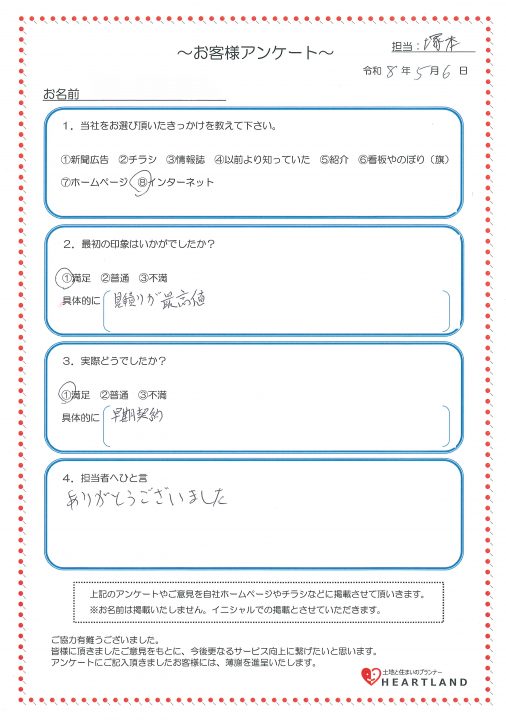 ～お客様アンケート～
担当：塚本
令和 8 年 5 月 6 日
お名前
１．当社をお選び頂いたきっかけを教えて下さい。
①新聞広告 ②チラシ ③情報誌 ④以前より知っていた ⑤紹介 ⑥看板やのぼり（旗）
⑦ホームページ ⑧インターネット
２．最初の印象はいかがでしたか？
①満足 ②普通 ③不満
具体的に 見積りが最高値
３．実際どうでしたか？
①満足 ②普通 ③不満
具体的に 早期契約
４．担当者へひと言
ありがとうございました
上記のアンケートやご意見を自社ホームページやチラシなどに掲載させて頂いきます。
※お名前は掲載いたしません。イニシャルでの掲載とさせていただきます。
ご協力有難うございました。
皆様に頂きましたご意見をもとに、今後更なるサービス向上に繋げたいと思います。
アンケートにご記入頂きましたお客様には、薄謝を進呈いたします。
土地と住まいのプランナー
HEARTLAND